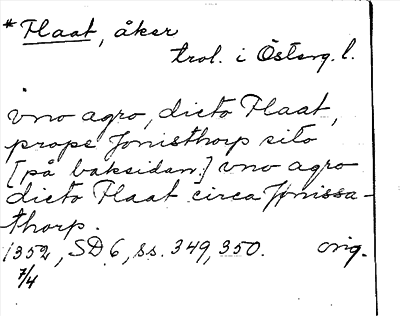 *Flaat, åker
trol. i Österg. l.
vno agro, dicto Flaat,
prope Jonisthorp sito
[på baksidan:] vno agro
dicto Flaat circa Jønissa-
thorp.
1352, SD 6, ss. 349, 350. orig.
7/4